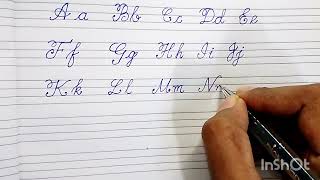 Aa Bb Cc Dd Ee
Ff Gg Hh Ii Jj
Kk Ll Mm Nn
InShOt